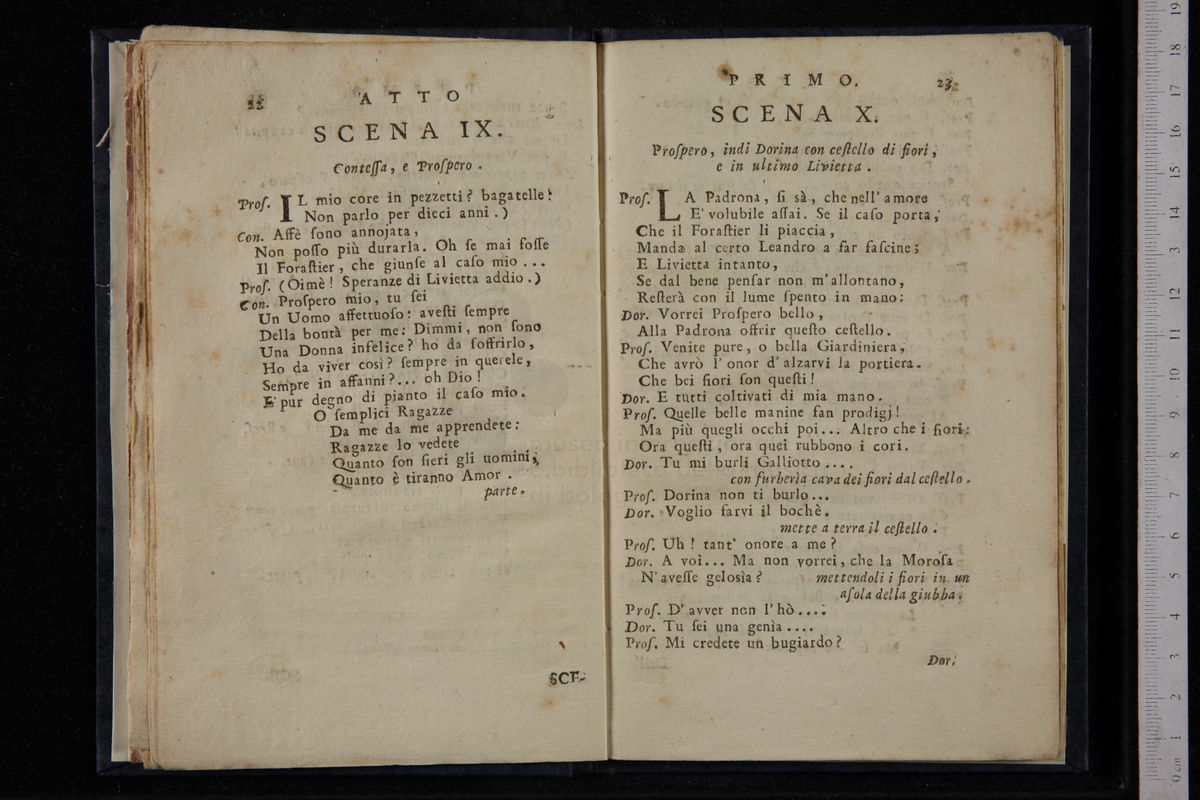 22
ATTO
SCENA IX.
Conteſſa, e Proſpero.
Proſ. IL mio core in pezzetti? bagatelle!
Non parlo per dieci anni.)
Con. Affè ſono annojata,
Non poſſo più durarla. Oh ſe mai foſſe
Il Foraſtier, che giunſe al caſo mio...
Proſ. (Oimè! Speranze di Livietta addio.)
Con. Proſpero mio, tu ſei
Un Uomo affettuoſo: aveſti ſempre
Della bontà per me: Dimmi, non ſono
Una Donna infelice? ho da ſoffrirlo,
Ho da viver così? ſempre in querele,
Sempre in affanni?... oh Dio!
E' pur degno di pianto il caſo mio.
O ſemplici Ragazze
Da me da me apprendete:
Ragazze lo vedete
Quanto ſon fieri gli uomini,
Quanto è tiranno Amor.
parte.
SCE-
PRIMO.
23
SCENA X.
Proſpero, indi Dorina con ceſtello di fiori,
e in ultimo Livietta.
Proſ. LA Padrona, ſi sà, che nell' amore
E' volubile aſſai. Se il caſo porta,
Che il Foraſtier li piaccia,
Manda al certo Leandro a far faſcine;
E Livietta intanto,
Se dal bene penſar non m'allontano,
Reſterà con il lume ſpento in mano:
Dor. Vorrei Proſpero bello,
Alla Padrona offrir queſto ceſtello.
Proſ. Venite pure, o bella Giardiniera,
Che avrò l' onor d' alzarvi la portiera.
Che bei fiori ſon queſti!
Dor. E tutti coltivati di mia mano.
Proſ. Quelle belle manine fan prodigj!
Ma più quegli occhi poi... Altro che i fiori:
Ora queſti, ora quei rubbono i cori.
Dor. Tu mi burli Galliotto....
con furberìa cava dei fiori dal ceſtello.
Proſ. Dorina non ti burlo...
Dor. Voglio farvi il bochè.
mette a terra il ceſtello.
Proſ. Uh! tant' onore a me?
Dor. A voi... Ma non vorrei, che la Moroſa
N'aveſſe gelosìa? mettendoli i fiori in un
aſola della giubba.
Proſ. D' avver non l' hò....
Dor. Tu ſei una genìa....
Proſ. Mi credete un bugiardo?
Dor.
0 cm 1 2 3 4 5 6 7 8 9 10 11 12 13 14 15 16 17 18 19